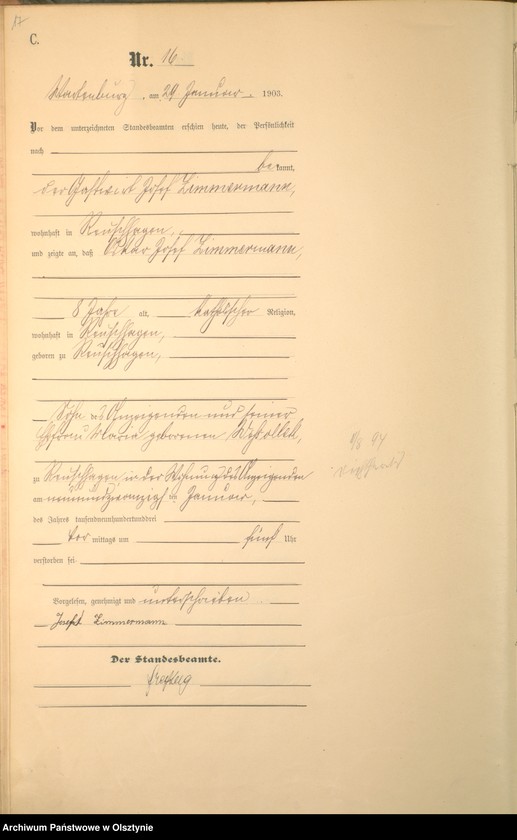 17
C.
Nr. 16
Wartenburg, am 29 Januar 1903.
Vor dem unterzeichneten Standesbeamten erschien heute, der Persönlichkeit
nach
bekannt,
der Gastwirt Josef Zimmermann,
wohnhaft in Reuschhagen,
und zeigte an, daß Oskar Josef Zimmermann,
8 Jahre alt, katholischer Religion,
wohnhaft in Reuschhagen,
geboren zu Reuschhagen,
Sohn des Anzeigenden und seiner
Ehefrau Maria geborenen
zu Reuschhagen, in der Wohnung des Anzeigenden
am neunundzwanzigsten Januar,
des Jahres tausendneunhundertunddrei
vormittags um fünf Uhr
verstorben sei.
Vorgelesen, genehmigt und unterschrieben
Josef Zimmermann
Der Standesbeamte.
Archiwum Państwowe w Olsztynie